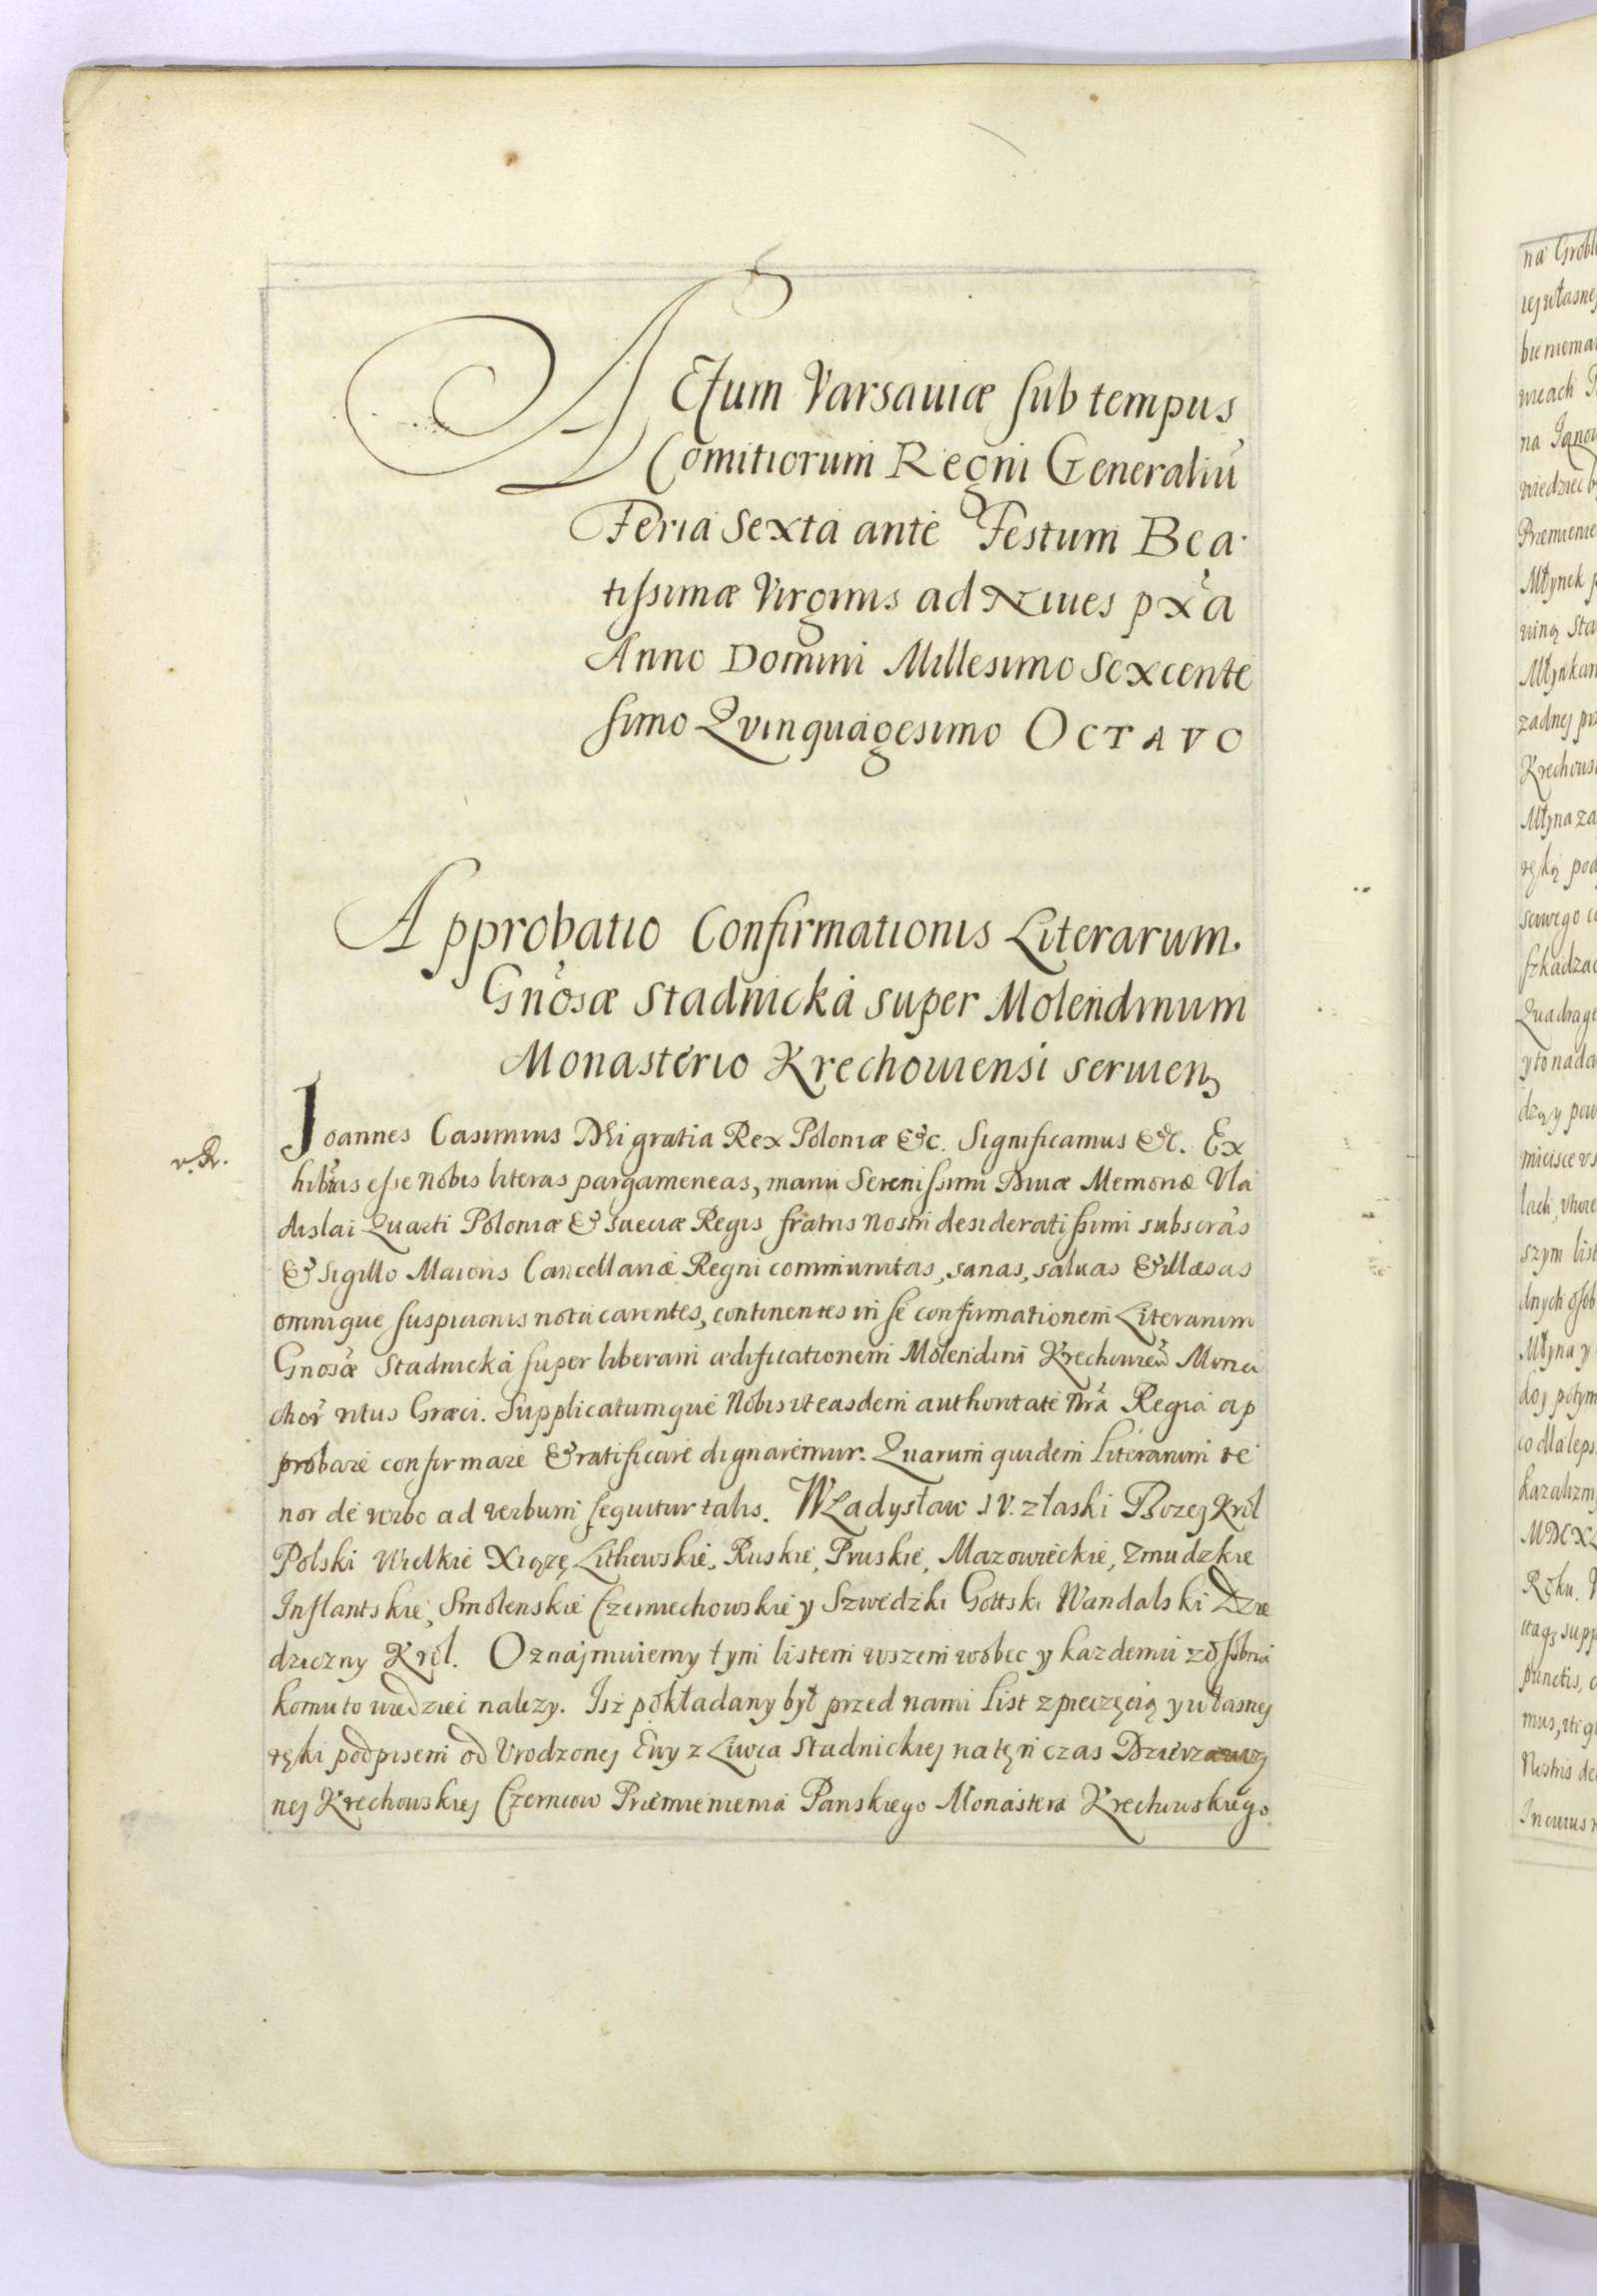 Actum Varsaviæ sub tempus
Comitiorum Regni Generaliū
Feria Sexta ante Festum Bea
tissimæ Virginis ad Niues pxa
Anno Domini Millesimo Sexcente
simo Qvinquagesimo OCTAVO
Approbatio Confirmationis Literarum
Gnosæ Stadnicka super Molendinum
Monasterio Krechouiensi seruien
Joannes Casimirus Dei gratia Rex Poloniæ &c. Significamus &c. Ex
hibitas esse Nobis literas pargameneas, manu Serenissimi Diuæ Memoriæ Vla
dislai Quarti Poloniæ & Sueciæ Regis fratris Nostri desideratissimi subscras
& Sigillo Maioris Cancellariæ Regni communitas, sanas, saluas & illæsas
omnique suspicionis nota carentes, continentes in se confirmationem Literarum
Gnosæ Stadnicka super liberam ædificationem Molendini Krechouien Mona
chor ritus Græci. Supplicatumque Nobis ut easdem authoritate Nra Regia ap
probare confirmare & ratificare dignaremur. Quarum quidem literarum te
nor de verbo ad verbum sequitur talis. Władysław IV. z łaski Bozej Król
Polski Wielkie Xiązę Lithewskie, Ruskie, Pruskie, Mazowieckie, Zmudzkie
Inflantskie, Smolenskie Czerniechowskie y Szwedzki Gottski Wandalski Dzie
dziczny Król. Oznajmuiemy tym listem wszem wobec y kazdemu zosobna
komu to wiedzieć nalezy. Isz pokładany był przed nami list z pieczęcią y własnej
ręki podpisem od Vrodzonej Ewy z Zuwca Stadnickiej na tęn czas Dzierzawcy
nej Krechowskiej Czerncow Przemienienia Panskiego Monastera Krechowskiego
v. R.
na Grobl
iej własnej
na Janow
wiedziec b
Przemienie
Młynek p
Młynkam
zadnej prz
Krechows
Młyna za
Quadrage
y to nada
miejsce vs
szym list
dnych osob
Młyna y
doj potym
co dla leps
Roku. W
itaq supp
punctis, c
mus, iti q
Nostris de
In cuius r